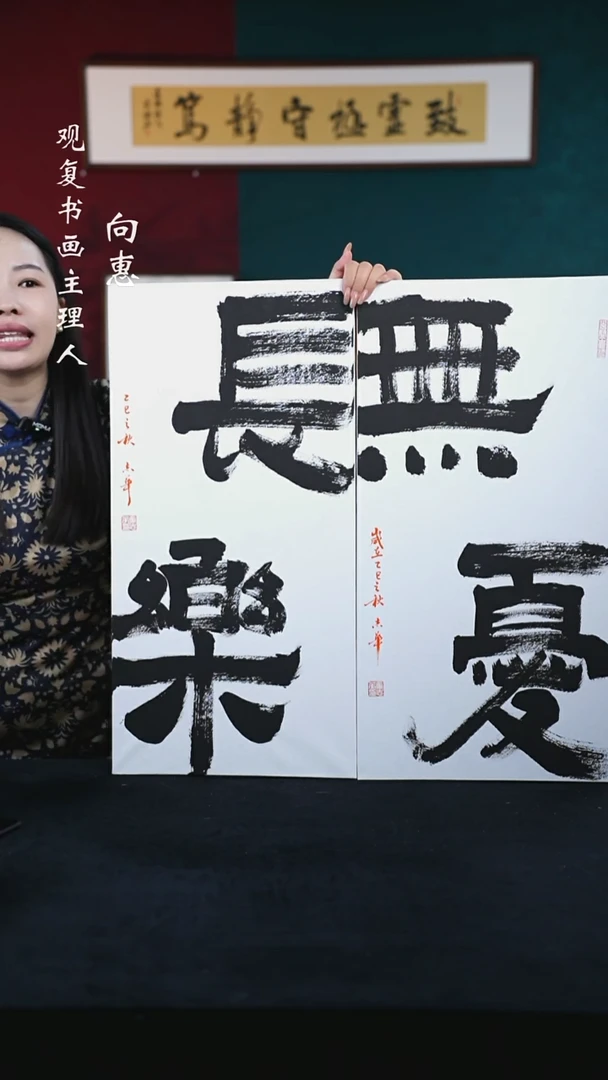 致虛極守靜篤
观复书画主理人
向惠
無憂
歲在乙巳之秋
長樂
乙巳之秋